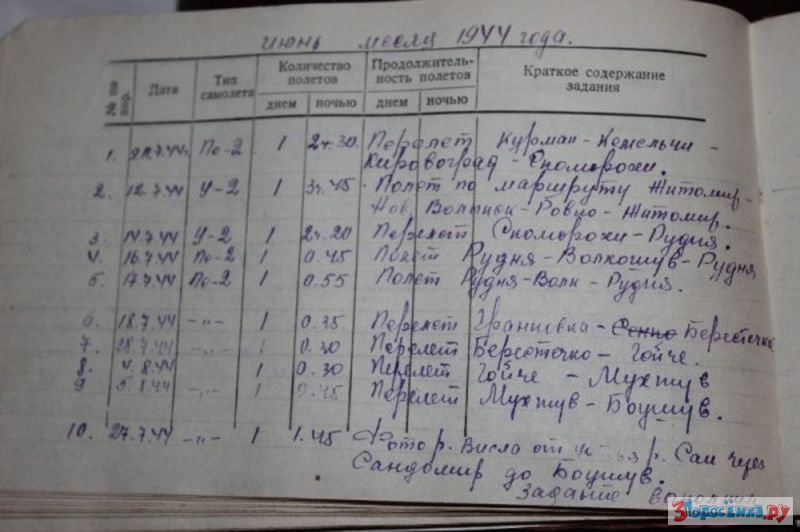 июнь месяц 1944 года.
№ по пор. Дата Тип самолета Количество полетов днем ночью Продолжительность полетов днем ночью Краткое содержание задания
1. 7.44 По-2 1 2ч.30. Перелет Курман-Кемельчи -
Кировоград - Скоморохи.
2. 12.7.44 У-2 1 3ч.45 - Полет по маршруту Житомир-
Нов. Волынск-Ровно-Житомир.
3. 14.7.44 У-2 1 2ч.20 Перелет Скоморохи-Рудня.
4. 16.7.44 По-2 1 0.45 Полет Рудня-Волкошув-Рудня
5. 17.7.44 По-2 1 0.55 Полет Рудня-Волк-Рудня.
6. 18.7.44 -„- 1 0.35 Перелет Грановка - Берестечко
7. 28.7.44 -„- 1 0.30 Перелет Берестечко - Гойче.
8. 4.8.44 1 0.30 Перелет Гойче - Мухтув
9 5.8.44 -„- 1 0.45 Перелет Мухтув-Боушув.
10. 27.7.44 -„- 1 1.45 Фото р. Висла от р. Сан через
Сандомир до Боушув.
Задание
Поросенка.ру